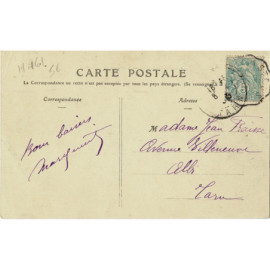 CARTE POSTALE
La Correspondance au recto n'est pas acceptée par tous les pays étrangers.
Correspondance
Adresse
Bons baisers
Marguerite
Madame Jean
Avenue Villeneuve
Albi
Tarn